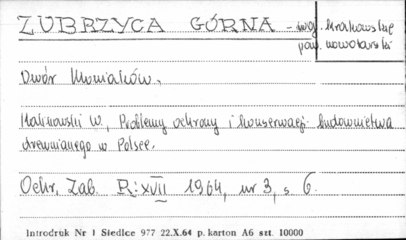 ZUBRZYCA GÓRNA - woj. krakowskie
pow. nowotarski
Dwór Moniaków.
Kalinowski W., Problemy ochrony i konserwacji budownictwa
drewnianego w Polsce.
Ochr. Zab. R: XVII 1964, nr 3, s. 6.
Introdruk Nr 1 Siedlce 977 22.X.64 p. karton A6 szt. 10000